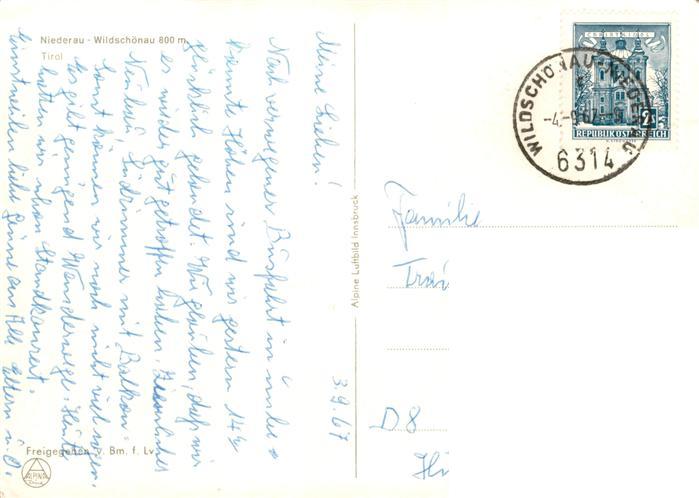 Niederau - Wildschönau 800 m
Tirol
3.9.67
Meine Lieben!
Nach verwegener Busfahrt in unbe=
kannte Höhen sind wir gestern 14½
glücklich gelandet. Wir glauben, daß wir
es wieder gut getroffen haben. Ziemlicher
Neubau, Südzimmer mit Balkon.
Sonst können wir noch nicht viel sagen.
Es gibt genügend Wanderwege. Heute
hatten wir schon Standkonzert.
Einstweilen liebe Grüße an Alle Eltern u. O.
Freigegeben v. Bm. f. Lv.
ALPINA
Alpine Luftbild Innsbruck
CHRISTKINDL
2
REPUBLIK ÖSTERREICH
WILDSCHÖNAU-NIEDERAU
6314
Familie
Trai
D 8
Hi